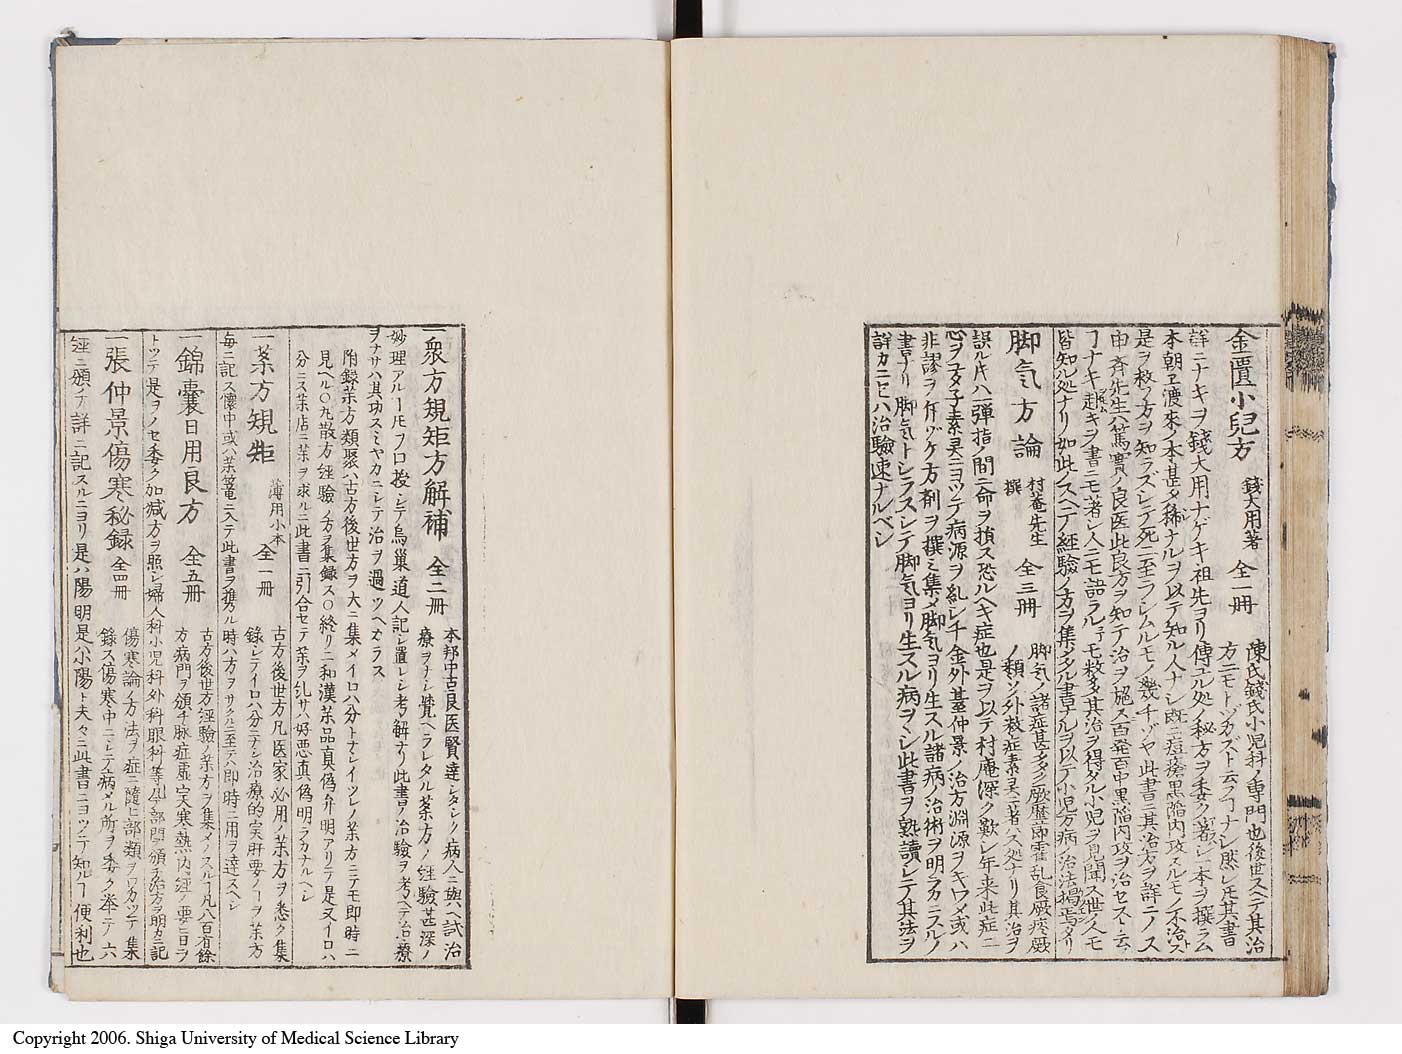 金匱小兒方 錢大用著 全一冊 陳氏錢氏小児科ノ専門也後世スベテ其治
方ニモトヅカズト云フヿナシ然レ𪜈其書
詳ニナキヲ錢大用ナゲキ祖先ヨリ傳ユル処ノ秘方ヲ委ク著シ一本ヲ撰ラム
本朝エ渡来ノ本甚タ稀ナルヲ以テ知ル人ナシ既ニ痘瘡黒陥内攻スルモノ不治
是ヲ救ノ方ヲ知ラズシテ死ニ至ラシムルモノ幾千ゾヤ此書ニ其治方ヲ詳ニノス
先生ハ篤實ノ良医此良方ヲ知テ治ヲ施ス百発百中黒陥内攻ヲ治セスト云
ヿナキ趣キヲ書ニモ著シ人ニモ語ラル予モ救多其治ヲ得タル小児ヲ見聞ス世ノ人モ
皆知ル処ナリ如此ノスベテ経驗ノ方ヲ集タル書ナルヲ以テ小児方病ノ治法掲焉タリ
脚气方論 村菴先生撰 全三冊 脚气ノ諸症甚多ク厥歴節霍乱食厥疼厥
ノ類ソノ外救症素灵ニ著ハス処ナリ其治ヲ
誤ル𪜈ハ一弾指ノ間ニ命ヲ損ス恐ルヘキ症也是ヲ以テ村庵深ク歎シ年来此症ニ
心ヲユタ子素灵ニヨツテ病源ヲ糺シ千金外臺仲景ノ治方淵源ヲキワメ或ハ
非謬ヲ作ヅケ方剤ヲ撰ミ集メ脚気ヨリ生スル諸病ノ治術ヲ明ラカニスルノ
書ナリ脚気トシラスシテ脚気ヨリ生スル病ヲシ此書ヲ熟讀シテ其法ヲ
詳カニセハ治驗速ナルベシ
一衆方規矩方解補 全二冊 本邦中古良医賢達シタシク病人ニ與ヘ試治
療ヲナシ覺ヘラレタル茶方ノ経驗甚深ノ
妙理アルヿ𪜈ヲ口授シテ烏巣道人記シ置レシ考解ナリ此書ノ治驗ヲ考ヘテ治療
ヲナサハ其功スミヤカニシテ治ヲ過ツヘカラス
附録茶方類聚ハ古方後世方ヲ大ニ集メイロハ分トナシイツレノ茶方ニテモ即時ニ
見ヘル〇丸散方経驗ノ方ヲ集録ス〇終リニ和漢茶品真偽弁明アリテ是又イロハ
分ニス茶店ニ茶ヲ求ルニ此書ニ引合セテ茶ヲ乱サハ好悪真偽明ラカナルヘシ
一茶方規矩 薄用小本 全一冊 古方後世方凡医家必用ノ茶方ヲ悉ク集
録シテイロハ分ニナシ治療的実肝要ノヿヲ茶方
毎ニ記ス懐中或ハ茶篭ニ入テ此書ヲ携ル時ハ方ヲサクルニ至テハ即時ニ用ヲ達スヘシ
一錦嚢日用良方 全五冊 古方後世方経驗ノ茶方ヲ集メノスルヿ凡八百有餘
方病門ヲ頒チ脉症虚実寒熱内経ノ要ニ日ヲ
トツテ是ヲノセ委ク加減方ヲ照シ婦人科小児科外科眼科等凡今部門ヲ頒チ治方ヲ明カニ記
一張仲景傷寒秘録 全四冊 傷寒論ノ方法ヲ症ニ隨ヒ部類ヲワカツテ集
録ス傷寒中ニシテ病メル所ヲ委ク挙テ六
経ニ頒ノチ詳ニ記スルニヨリ是ハ陽明是ハ小陽ト夫々ニ此書ニヨツテ知ルヿ便利也
Copyright 2006. Shiga University of Medical Science Library